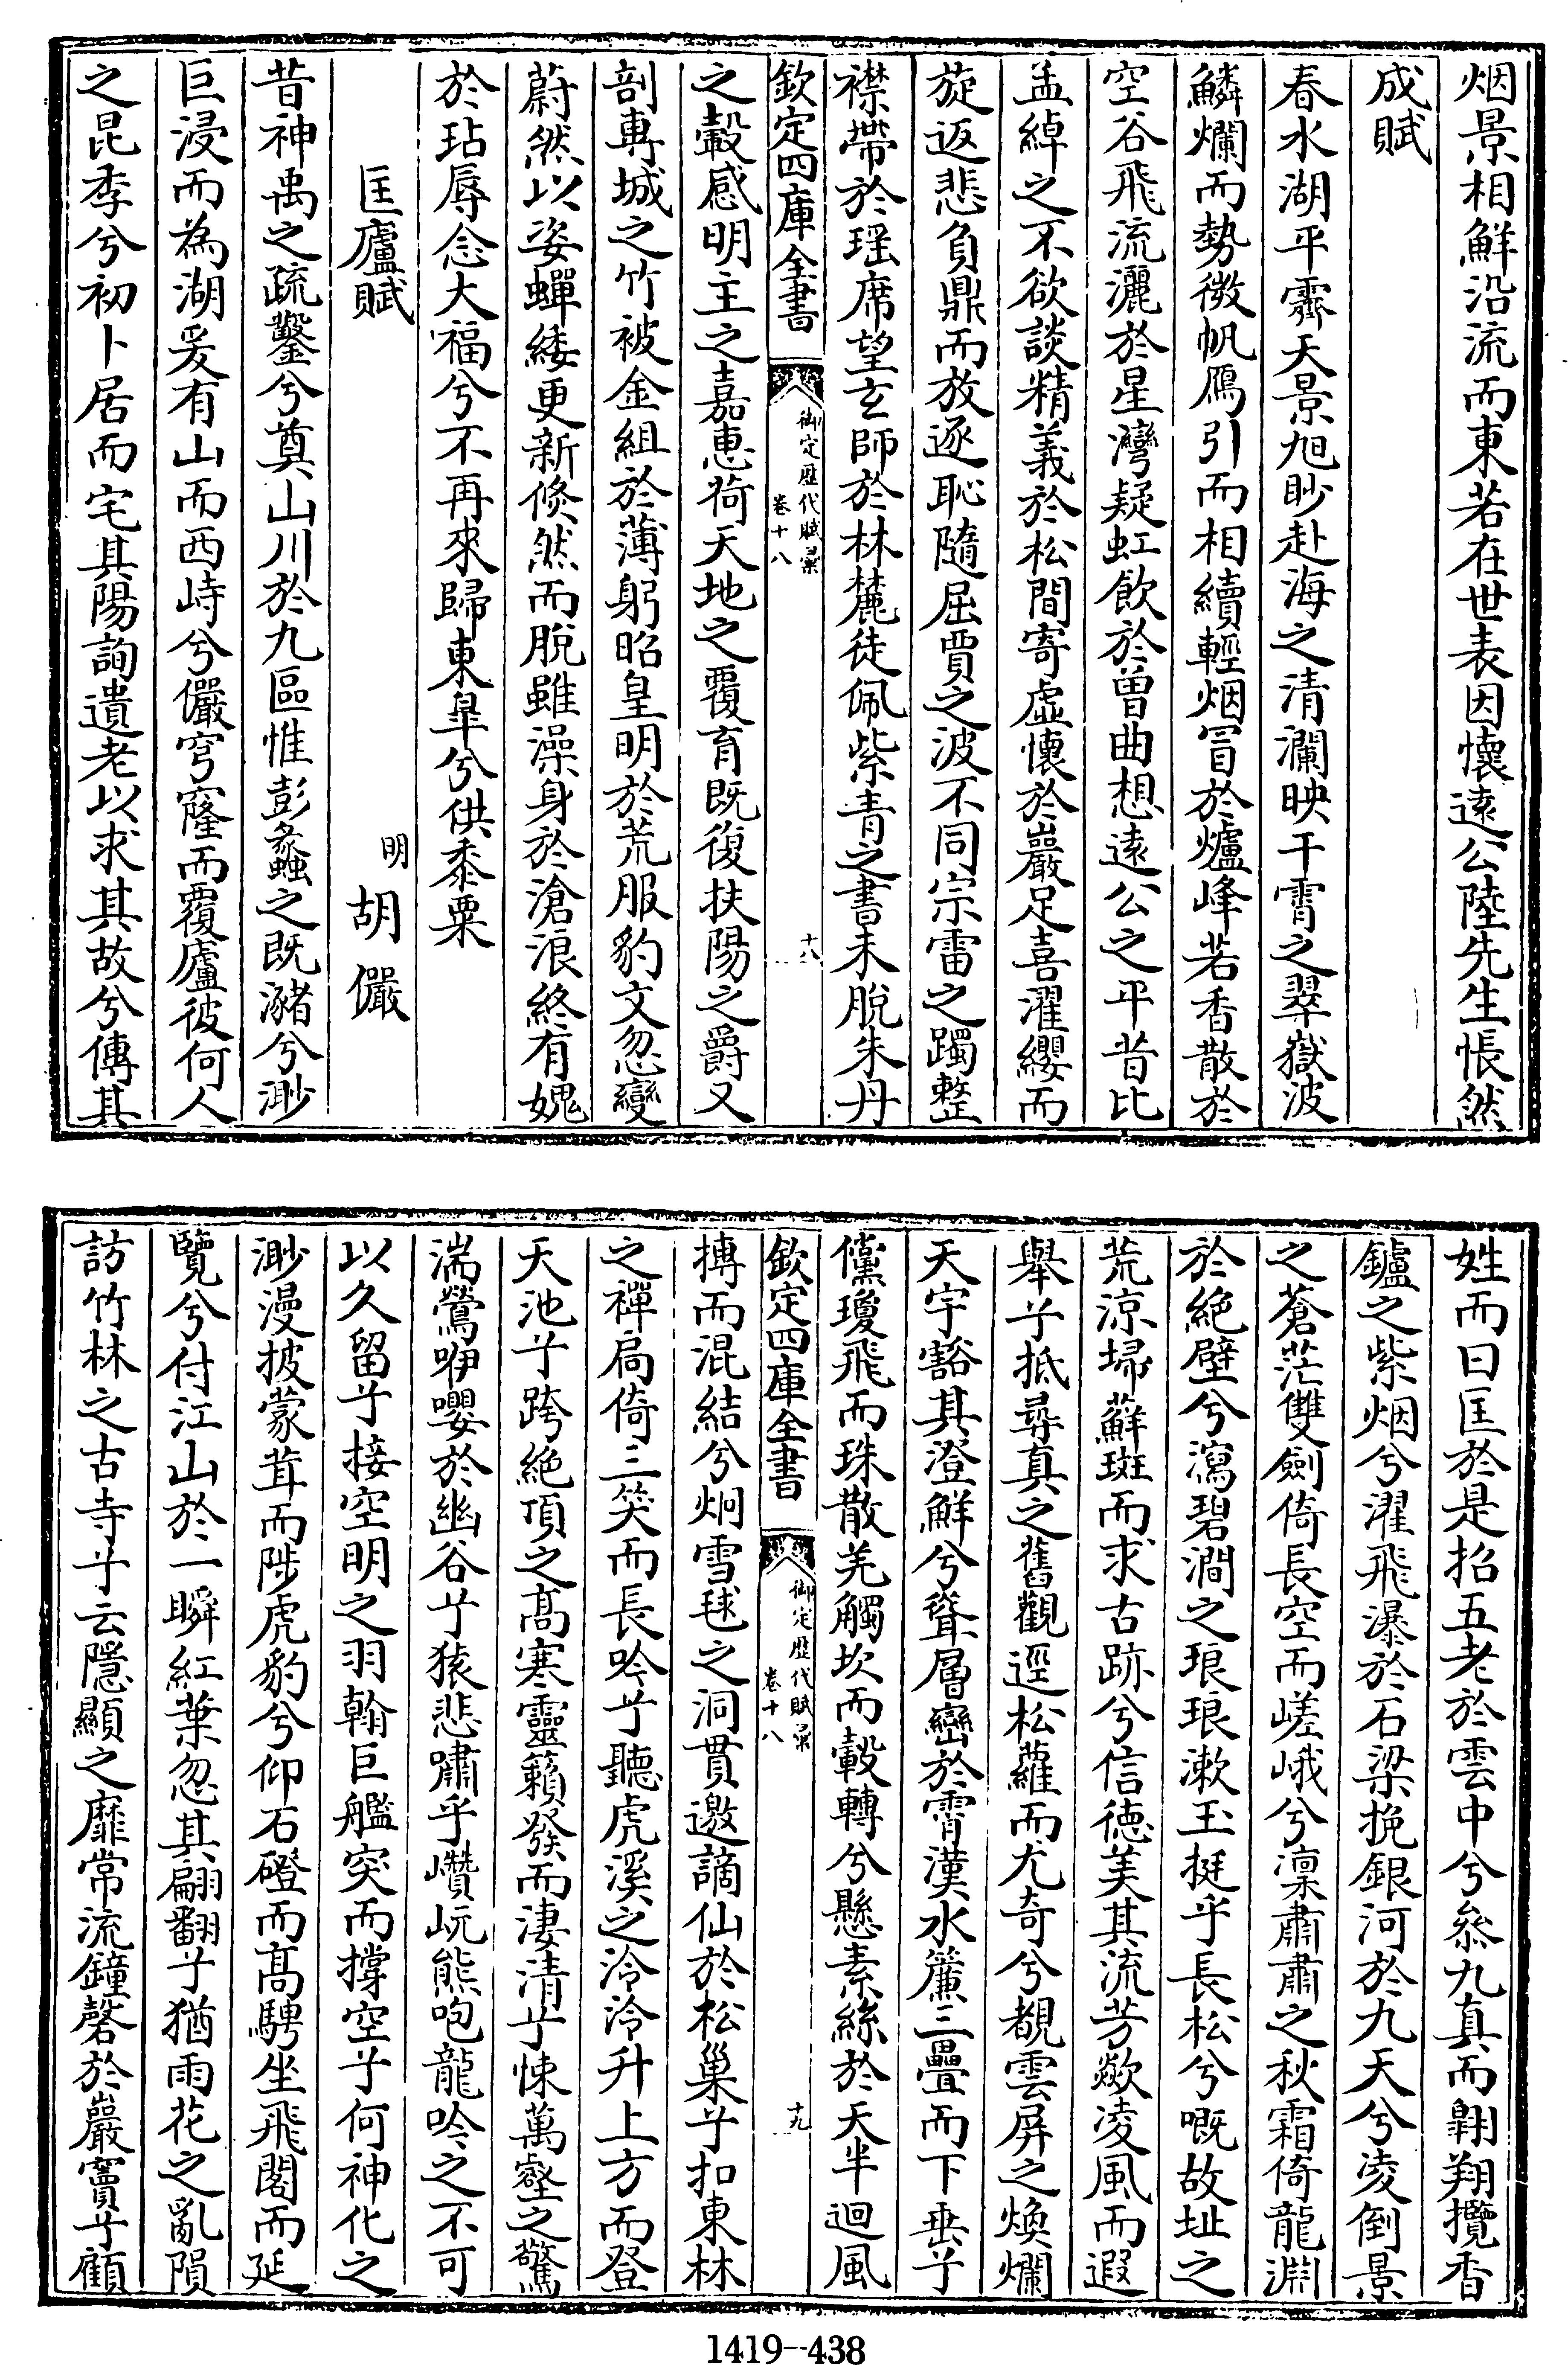 烟景相鮮沿流而東若在世表因懷遠公陸先生悵然
成賦
春水湖平霽天景旭眇赴海之清瀾映干霄之翠嶽波
鱗爛而勢微帆鴈引而相續輕烟冒於爐峰若香散於
空谷飛流灑於星灣疑虹飲於曽曲想遠公之平昔比
孟綽之不欲談精義於松間寄虛懷於巖足喜濯纓而
旋返悲負鼎而放逐恥隨屈賈之波不同宗雷之躅整
襟帶於瑶席望玄師於林麓徒佩紫青之書未脫朱丹
欽定四庫全書
御定歴代賦彚
卷十八
十八
之轂感明主之嘉惠荷天地之覆育既復扶陽之爵又
剖專城之竹被金組於薄躬昭皇明於荒服豹文忽變
蔚然以姿蟬緌更新倏然而脫雖澡身於滄浪終有媿
於玷辱念大福兮不再來歸東臯兮供黍粟
匡廬賦
明
胡儼
昔神禹之疏鑿兮奠山川於九區惟彭蠡之既瀦兮渺
巨浸而為湖爰有山而西峙兮儼穹窿而覆廬彼何人
之昆季兮初卜居而宅其陽詢遺老以求其故兮傳其
姓而曰匡於是招五老於雲中兮叅九真而翺翔攬香
鑪之紫烟兮濯飛瀑於石梁挽銀河於九天兮凌倒景
之蒼茫雙劍倚長空而嵯峨兮凛肅肅之秋霜倚龍淵
於絶壁兮瀉碧澗之琅琅漱玉挺乎長松兮嘅故址之
荒涼埽蘚斑而求古跡兮信徳美其流芳歘凌風而遐
舉兮抵尋真之舊觀逕松蘿而尤奇兮覩雲屏之煥爛
天宇豁其澄鮮兮聳層巒於霄漢水簾三疊而下垂兮
儻瓊飛而珠散羌觸坎而轂轉兮懸素絲於天半迴風
欽定四庫全書
御定歴代賦彚
卷十八
十九
摶而混結兮炯雪毬之洞貫邀謫仙於松巢兮扣東林
之禪扃倚三笑而長吟兮聽虎溪之泠泠升上方而登
天池兮跨絶頂之髙寒靈籟發而淒清兮悚萬壑之驚
湍鶯咿嚶於幽谷兮猿悲嘯乎巑岏熊咆龍吟之不可
以久留兮接空明之羽翰巨艦突而撐空兮何神化之
渺漫披蒙茸而陟虎豹兮仰石磴而髙騁坐飛閣而延
覽兮付江山於一瞬紅葉忽其翩翻兮猶雨花之亂隕
訪竹林之古寺兮云隱顯之靡常流鐘磬於巖竇兮顧
1419-438